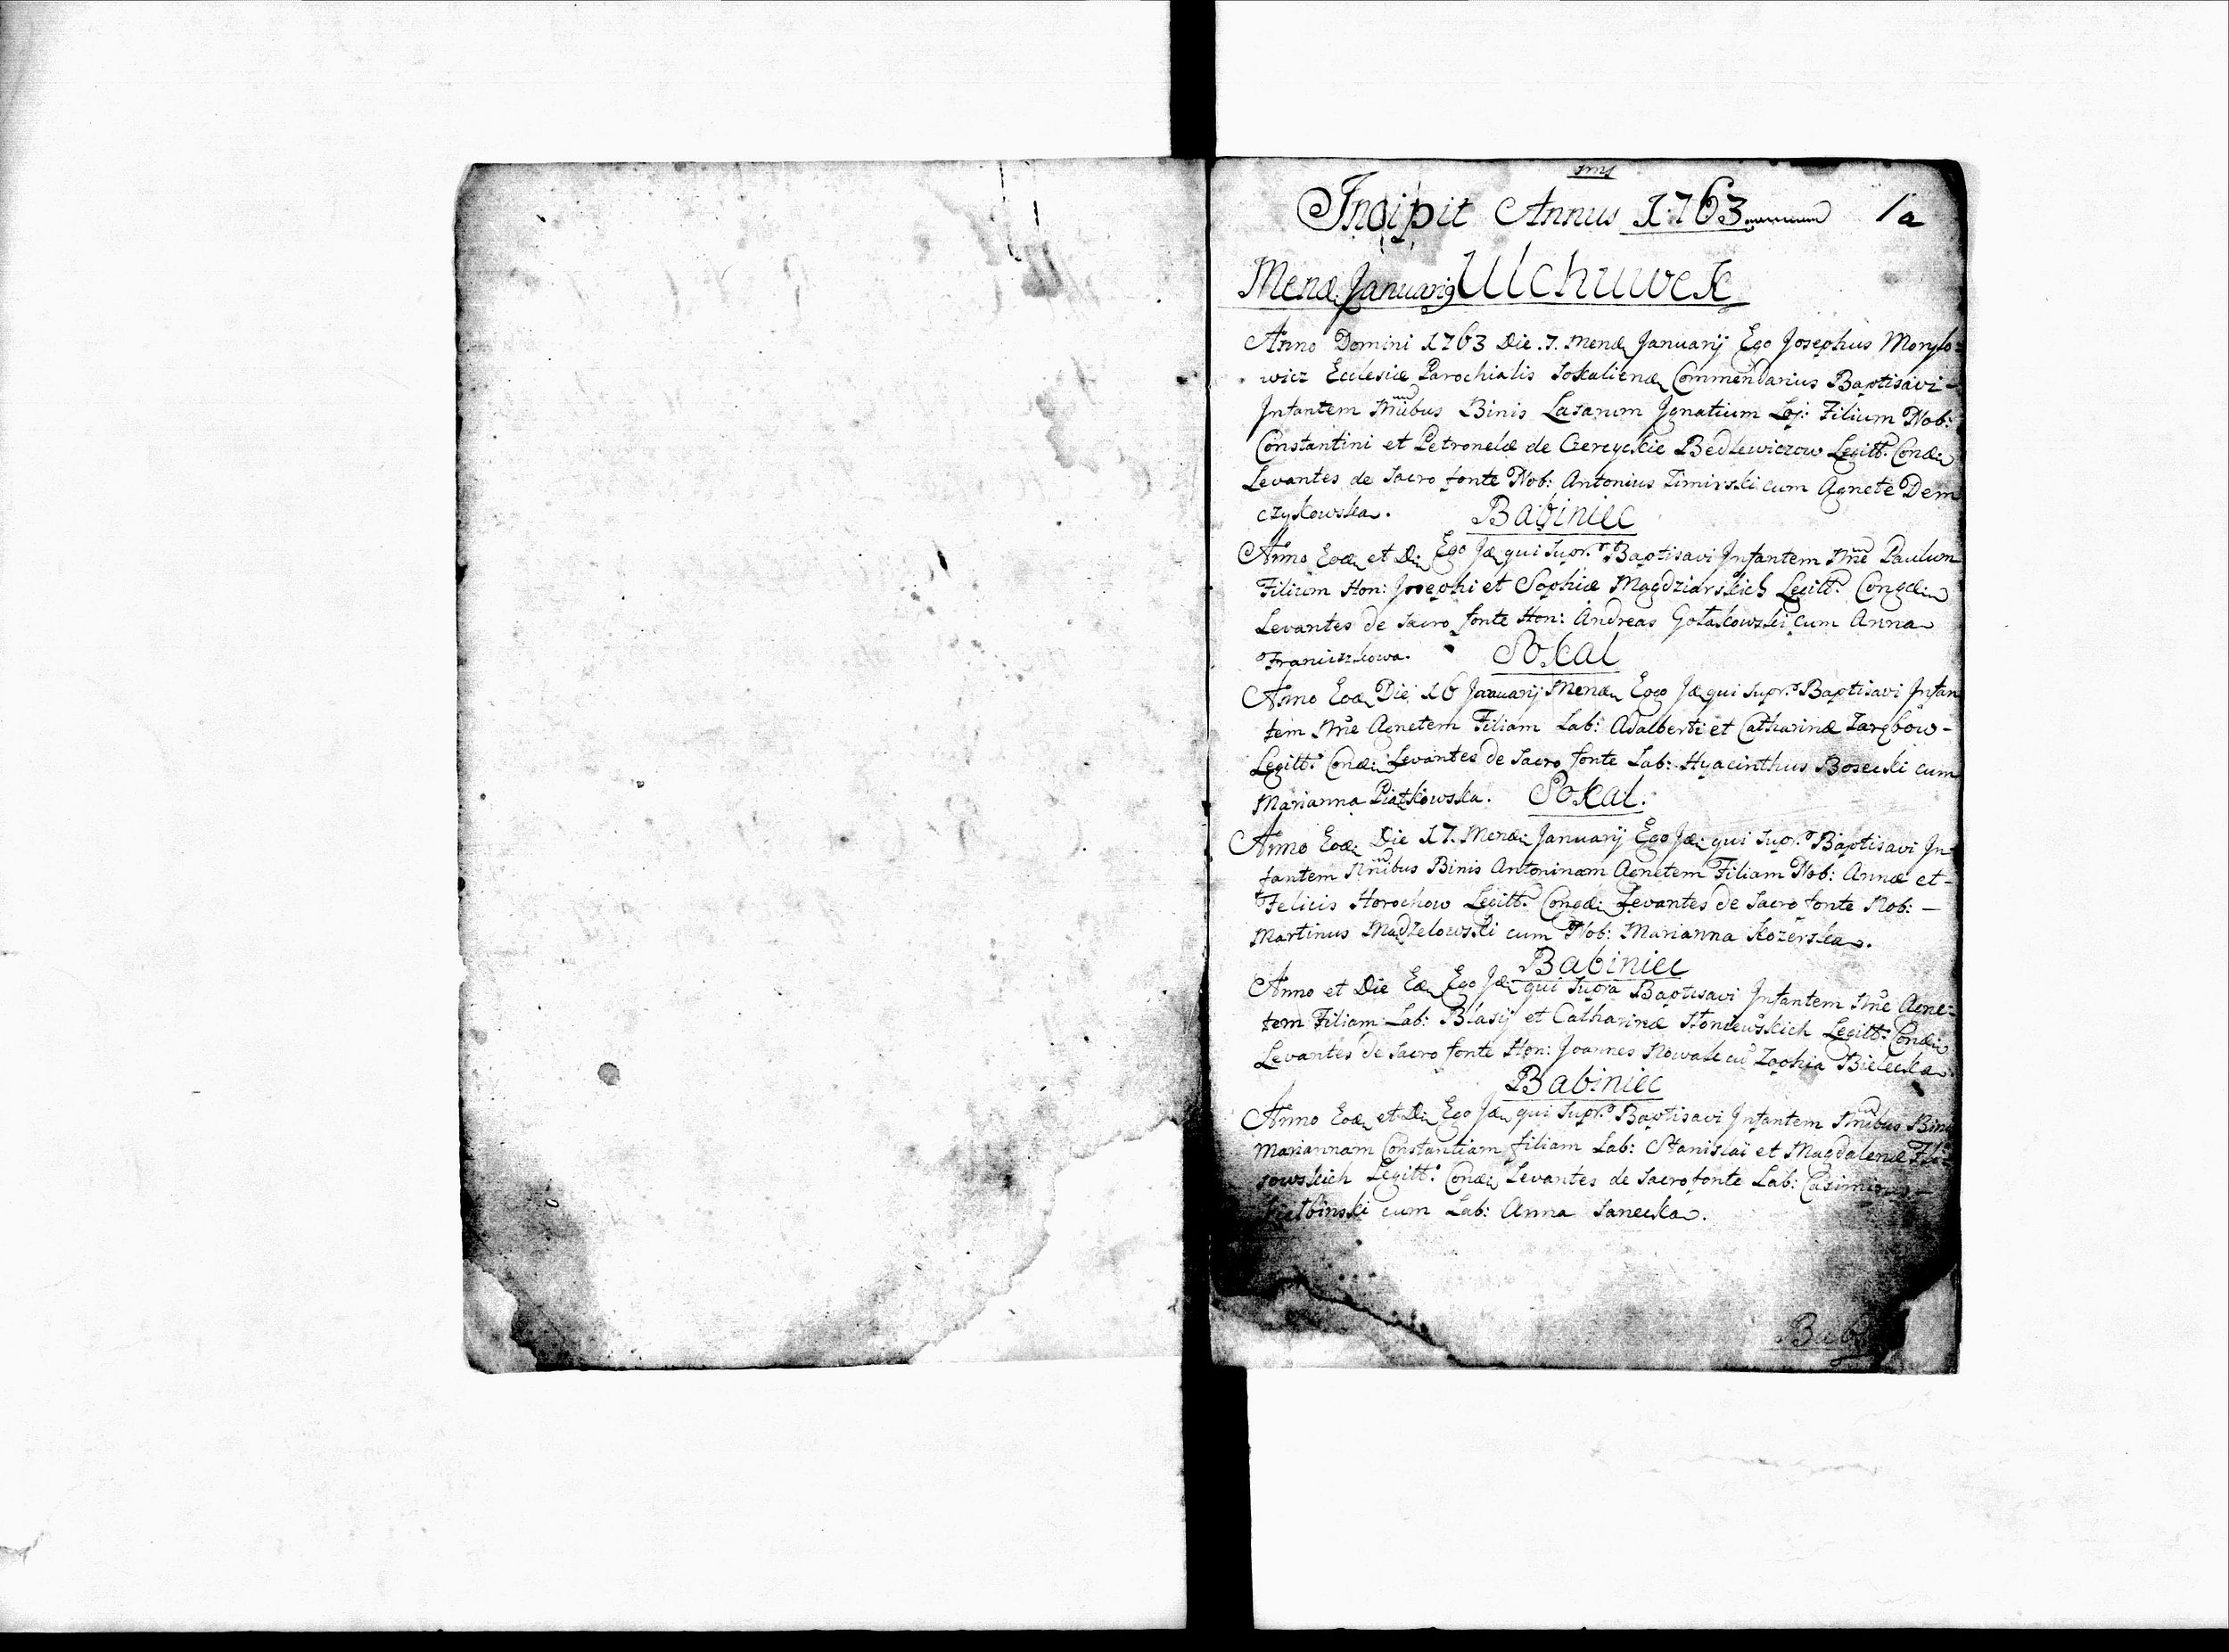 Incipit Annus 1763 1a
Menœ Januarij Ulchuwek
Anno Domini 1763 Die .7. Menœ Januarij Ego Josephus Morylo=
wicz Ecclesiæ Parochialis Sokalienœ Commendarius Baptisavi
Infantem Nnibus Binis Lasarum Ignatium Filium Nob:
Constantini et Petronelæ de Czereyckie Bedlewiczow Legitt. Conœ
Levantes de Sacro fonte Nob: Antonius Zimirski cum Agnete Dem
czykowska. Babiniec
Anno Eoœ et Di Ego Jœ qui Supr. Baptisavi Infantem Nne Paulum
Filium Hon: Josephi et Sophiæ Magdziarskich Legitt. Congœ
Levantes de Sacro fonte Hon: Andreas Gołaskowski cum Anna
Franciszkowa. Sokal
Anno Eoœ Die 16 Januarij Menœ Ego Jœ qui Supr. Baptisavi Infan
tem Nne Agnetem Filiam Lab: Adalberti et Catharinæ Zarębow -
Legitt. Conœ: Levantes de Sacro fonte Lab: Hyacinthus Bosecki cum
Marianna Piątkowska. Sokal.
Anno Eoœ: Die 17. Menœ: Januarij Ego Jœ: qui Supr. Baptisavi In
fantem Nnibus Binis Antoninam Agnetem Filiam Nob: Annæ et -
Felicis Horochow Legitt. Congœ: Levantes de Sacro fonte Nob: —
Martinus Madzelowski cum Nob: Marianna Kozerska.
Babiniec
Anno et Die Eœ Ego Jœ: qui Supra Baptisavi Infantem Nne Agne=
tem Filiam Lab: Blasij et Catharinæ Słoniewskich Legitt: Conœ
Levantes de Sacro fonte Hon: Joannes Nowak cu Zophia Bielecka
Babiniec
Anno Eoœ et Di Ego Jœ qui Supr. Baptisavi Infantem Nnibus Binis
Mariannam Constantiam filiam Lab: Stanislai et Magdalenæ Fli=
sowskich Legitt: Conœ Levantes de Sacro fonte Lab: Casimirus
cum Lab: Anna Janecka.
Bab